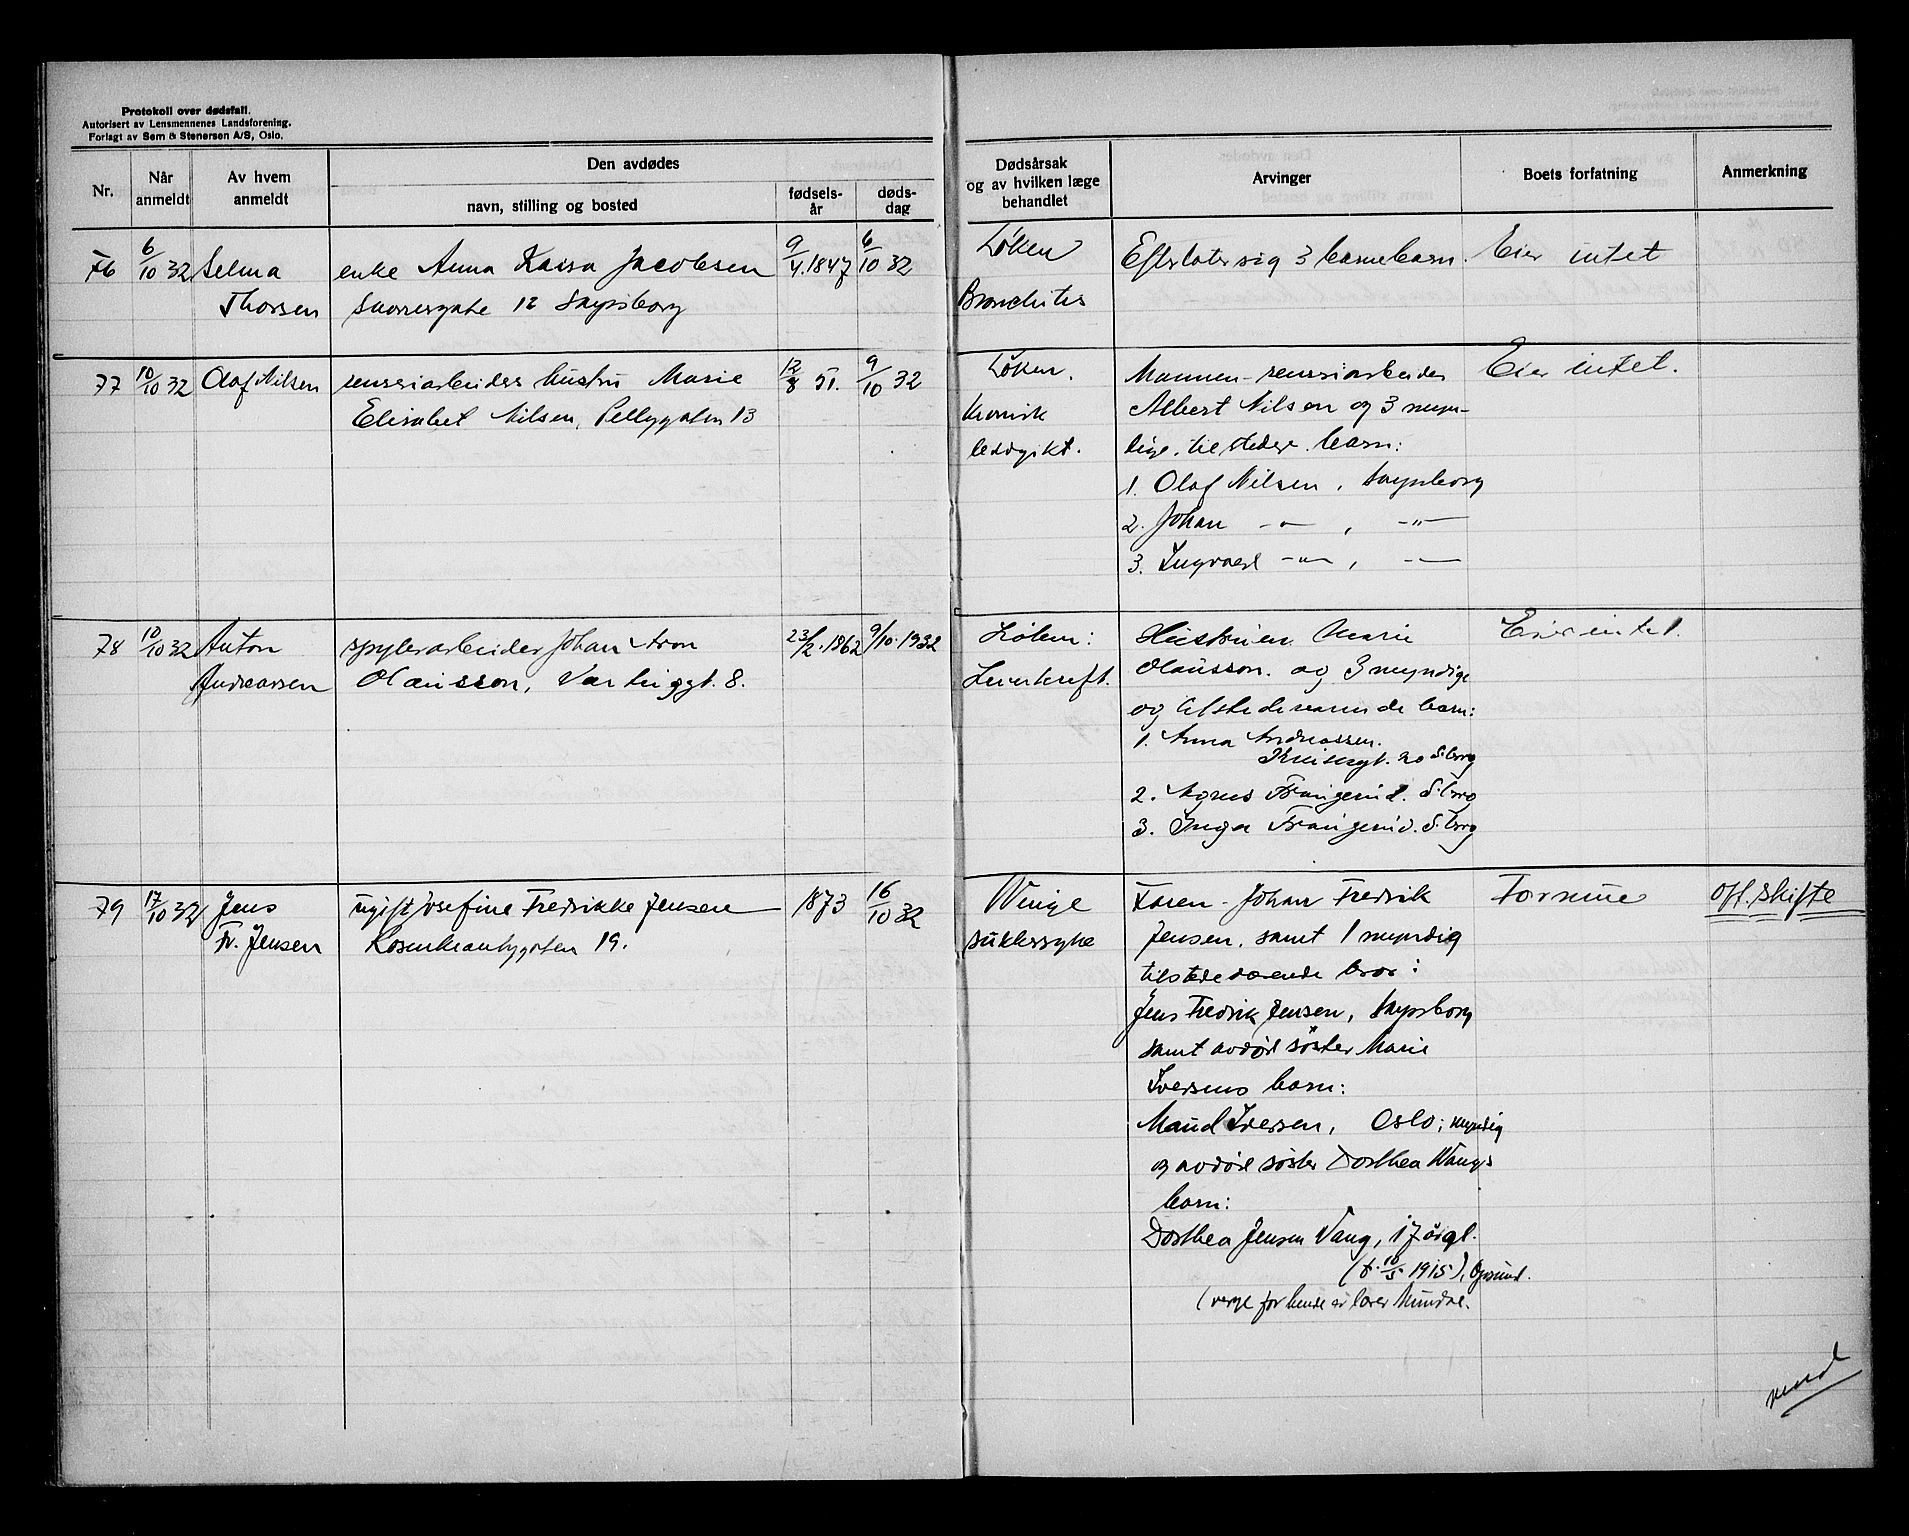 Protokoll over dødsfall.
Autorisert av Lensmennenes Landsforening.
Forlagt av Sem & Stenersen A/S, Oslo.
Nr.
Når anmeldt
Av hvem anmeldt
Den avdødes
navn, stilling og bosted
fødselsår
dødsdag
Dødsårsak
og av hvilken læge
behandlet
Arvinger
Boets forfatning
Anmerkning
76 6/10 32 Selma enke Anna Kaisa Jacobsen 9/4.1847 6/10 32
Thorsen 12 Sarpsborg
Løken
Bronchitis
Efterlater sig 3 barnebarn.
Eier intet
77 10/10 32 Olaf Nilsen renseriarbeider hustru Marie 12/8 51. 9/10 32
Elisabet Nilsen, Pellygaten 13
Løken.
Kronisk
leddgikt.
Mannen - renseriarbeider
Albert Nilsen og 3 myn-
dige, tilstedev. barn:
1. Olaf Nilsen, Sarpsborg
2. Johan -"- , -"-
3. Ingvald -"- , -"-
Eier intet.
78 10/10 32 Anton Johan Aron 23/2.1862 9/10.1932
Andreassen Olausson, 8.
Løken:
Leverkreft.
Hustruen Marie
Olausson. og 3 myndige
og tilstedeværende barn:
1. Anna Andreassen.
20 S.borg
2. Agnes S.borg
3. Inga S.borg
Eier intet.
79 17/10 32 Jens ugift Josefine Fredrikke Jensen 1873 16/10 32
Fr. Jensen Rosenkrantzgaten 19.
Winge
sukkersyke
Faren - Johan Fredrik
Jensen, samt 1 myndig
tilstedeværende bror:
Jens Fredrik Jensen, Sarpsborg
samt avdøde søster Marie
Iversens barn:
Maud Iversen, Oslo; myndig
og avdøde søster Dorthea Wangs
barn:
Dorthea Jensen Vang, 17 år gl.
(f. 10/5 1915),
(verge for hende er lærer
Formue
Off. skifte